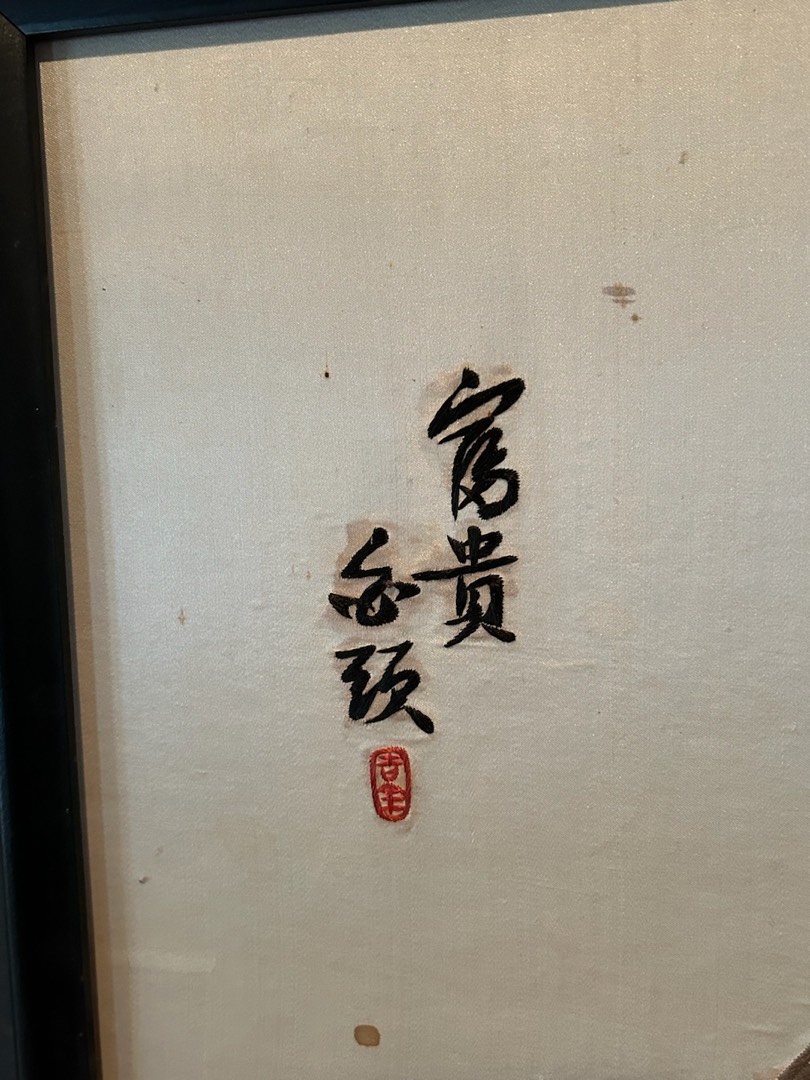 富貴
白頭